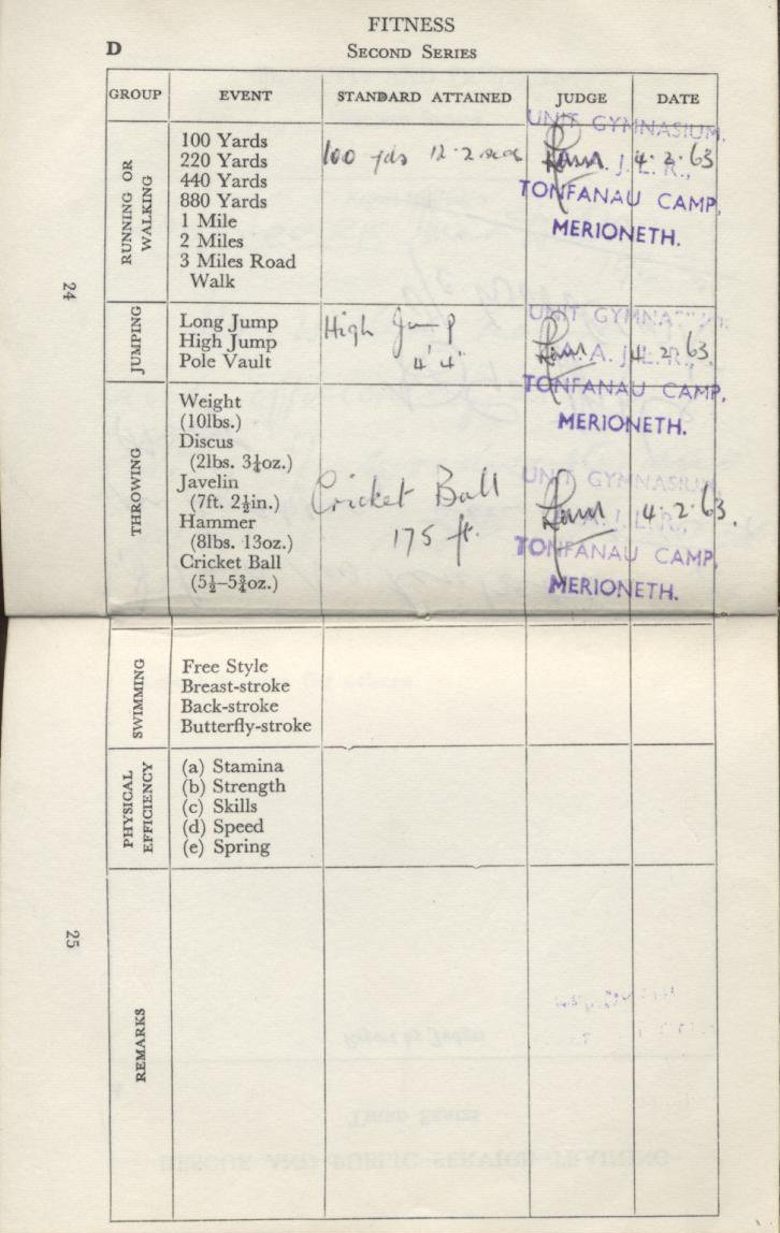 FITNESS
D
SECOND SERIES
GROUP EVENT STANDARD ATTAINED JUDGE DATE
RUNNING OR WALKING
100 Yards
220 Yards
440 Yards
880 Yards
1 Mile
2 Miles
3 Miles Road
Walk
100 yds 12.2 secs
4.2.63
UNIT GYMNASIUM.
A. J. L. R.,
TONFANAU CAMP,
MERIONETH.
24
JUMPING
Long Jump
High Jump
Pole Vault
High Jump
4' 4"
4.2.63
UNIT GYMNA
A. J. L. R.,
TONFANAU CAMP,
MERIONETH.
THROWING
Weight
(10lbs.)
Discus
(2lbs. 3¼oz.)
Javelin
(7ft. 2½in.)
Hammer
(8lbs. 13oz.)
Cricket Ball
(5½–5¾oz.)
Cricket Ball
175 ft.
4.2.63.
UNIT GYMNASIUM
TONFANAU CAMP,
MERIONETH.
SWIMMING
Free Style
Breast-stroke
Back-stroke
Butterfly-stroke
PHYSICAL EFFICIENCY
(a) Stamina
(b) Strength
(c) Skills
(d) Speed
(e) Spring
25
REMARKS